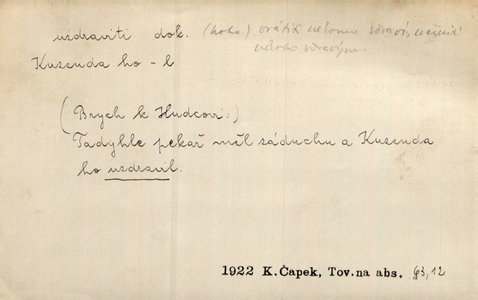 uzdraviti dok. (koho) vrátit někomu zdraví, učinit
někoho zdravým.
Kuzenda ho – l
(Brych k Hudcovi:)
Tadyhle pekař měl záduchu a Kuzenda
ho uzdravil.
1922 K.Čapek, Tov.na abs. 63,12